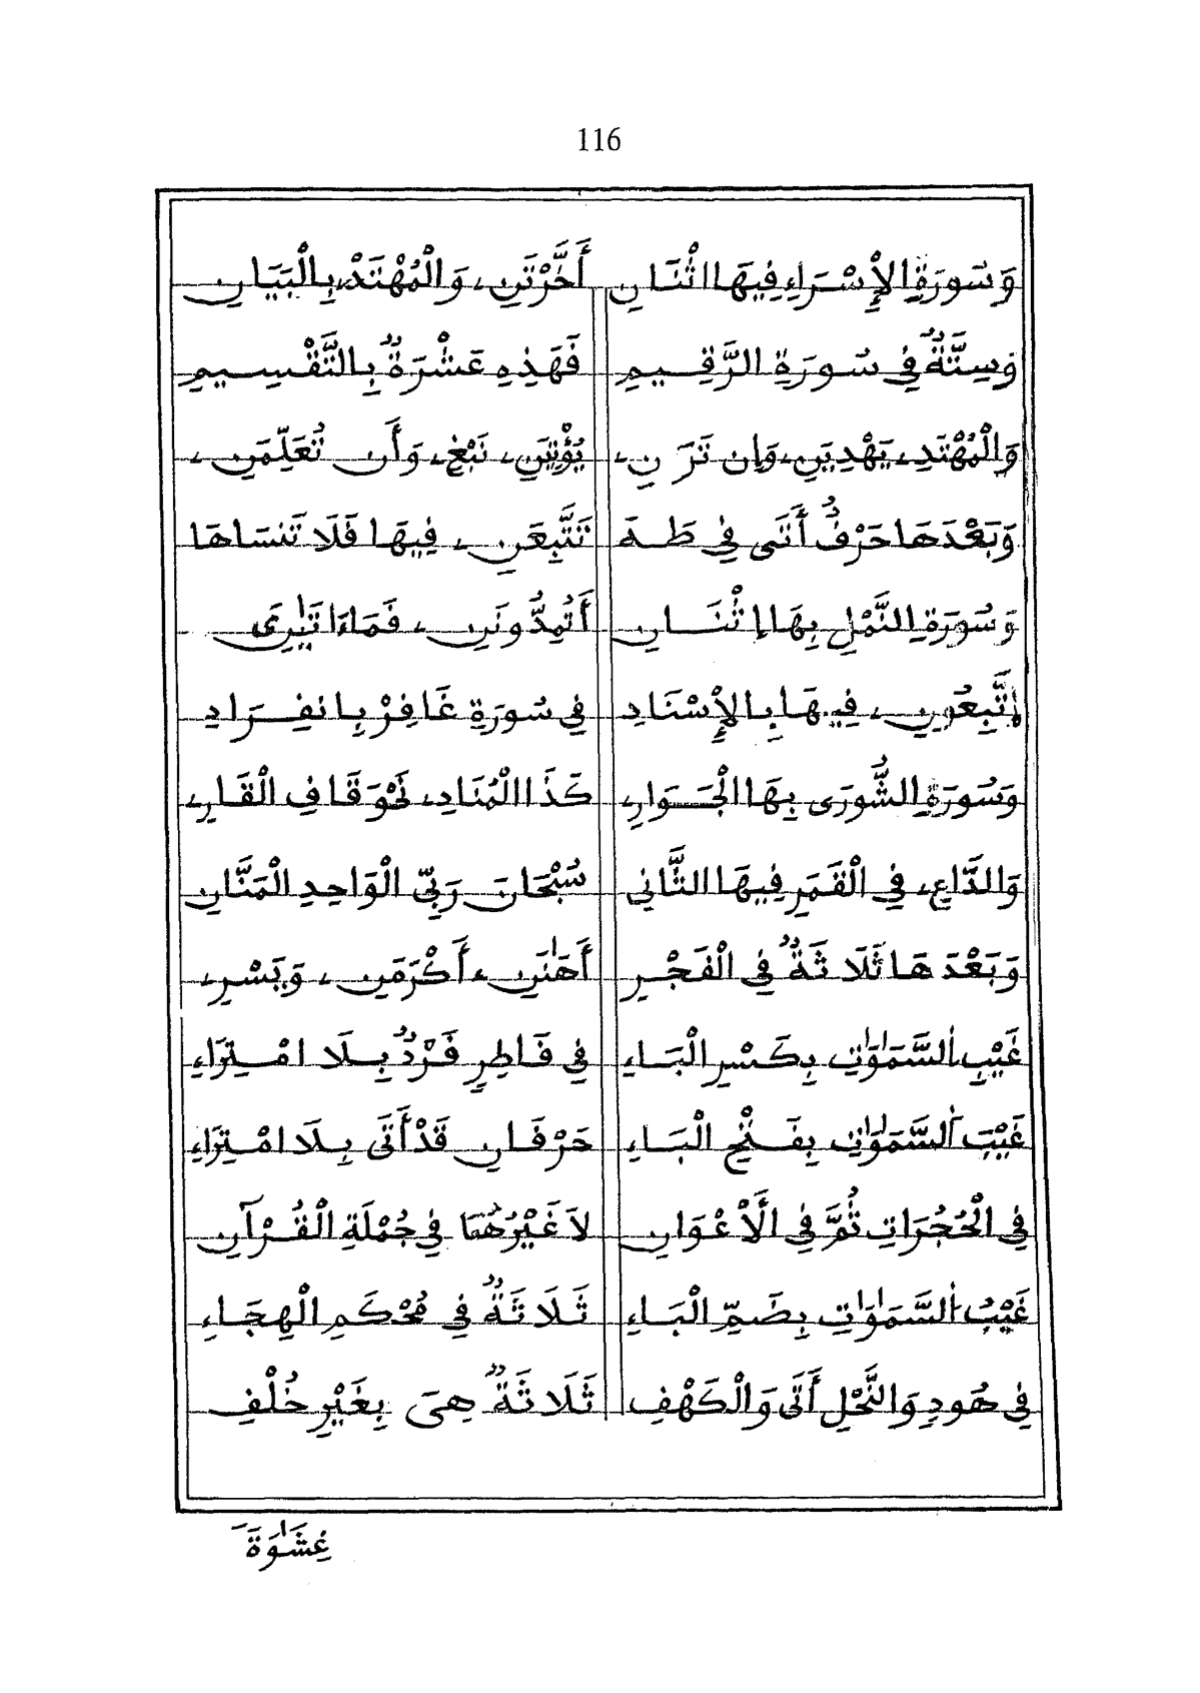 116
وَسُورَةِ الْإِسْرَاءِ فِيهَا اثْنَانِ أَخَّرْتَنِ، وَالْمُهْتَدْ، بِالْبَيَانِ
وَسِتَّةٌ فِي سُورَةِ الرَّقِيمِ فَهَذِهِ عَشْرَةٌ بِالتَّقْسِيمِ
وَالْمُهْتَدِ، يَهْدِيَنِ، وَإِن تَرَنِ، يُؤْتِيَنِ، نَبْغِ، وَأَن تُعَلِّمَنِ،
وَبَعْدَهَا حَرْفٌ أَتَى فِي طَهَ تَتَّبِعَنِ، فِيهَا فَلَا تَنسَاهَا
وَسُورَةِ النَّمْلِ بِهَا إثْنَانِ أَتُمِدُّونَنِ، فَمَاءَاتَيٰنِےَ
إِتَّبِعُونِ، فِيهَا بِالْإِسْنَادِ فِي سُورَةِ غَافِرْ بِانفِرَادِ
وَسُورَةِ الشُّورَى بِهَا الْجَوَارِ، كَذَا الْمُنَادِ، نَحْوَ قَافِ الْقَارِ،
وَالدَّاعِ، فِي الْقَمَرِ فِيهَا الثَّانِي سُبْحَانَ رَبِّي الْوَاحِدِ الْمَنَّانِ
وَبَعْدَهَا ثَلَاثَةٌ فِي الْفَجْرِ أَهَٰنَنِ، أَكْرَمَنِ، وَيَسْرِ،
غَيْبِ اَ۬لسَّمَٰوَٰتِ بِكَسْرِ الْبَاءِ فِي فَاطِرٍ فَرْدٌ بِلَا امْتِرَاءِ
غَيْبَ اَ۬لسَّمَٰوَٰتِ بِفَتْحِ الْبَاءِ حَرْفَانِ قَدْ أَتَى بِلَا امْتِرَاءِ
فِي الْحُجُرَاتِ ثُمَّ فِي الَأعْوَانِ لاَ غَيْرُهُمَا فِي جُمْلَةِ الْقُرْآنِ
غَيْبُ اُ۬لسَّمَٰوَٰتِ بِضَمِّ الْبَاءِ ثَلَاثَةٌ فِي مُحْكَمِ الْهِجَاءِ
فِي هُودِ وَالنَّحْلِ أَتَى وَالْكَهْفِ ثَلَاثَةٌ هِيَ بِغَيْرِ خُلْفِ
غِشَٰوَةَ